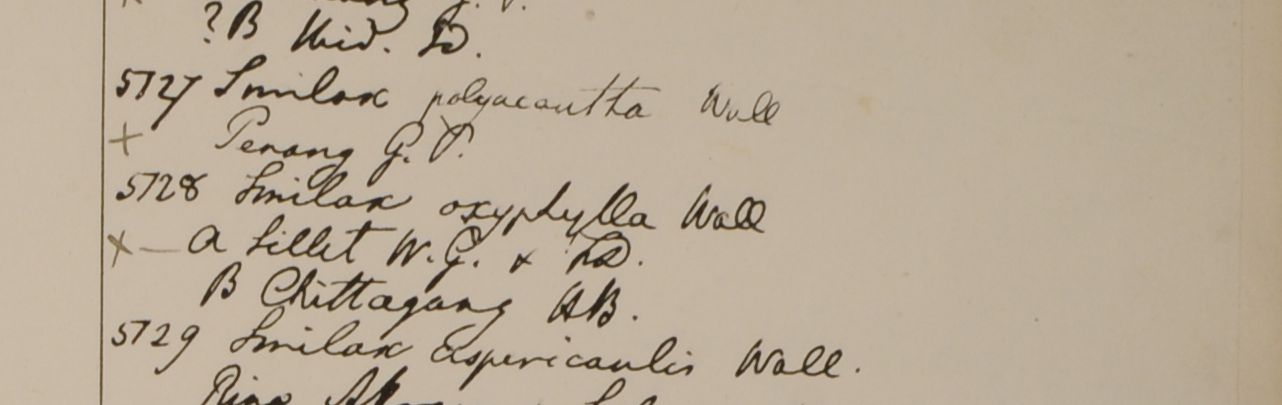 ? B Ibid.
5127 Smilax polyacantha Wall
+ Penang G. P.
5128 Smilax oxyphylla Wall
x — a Sillet W. G. &
B Chittagang HB.
5129 Smilax aspericaulis Wall.